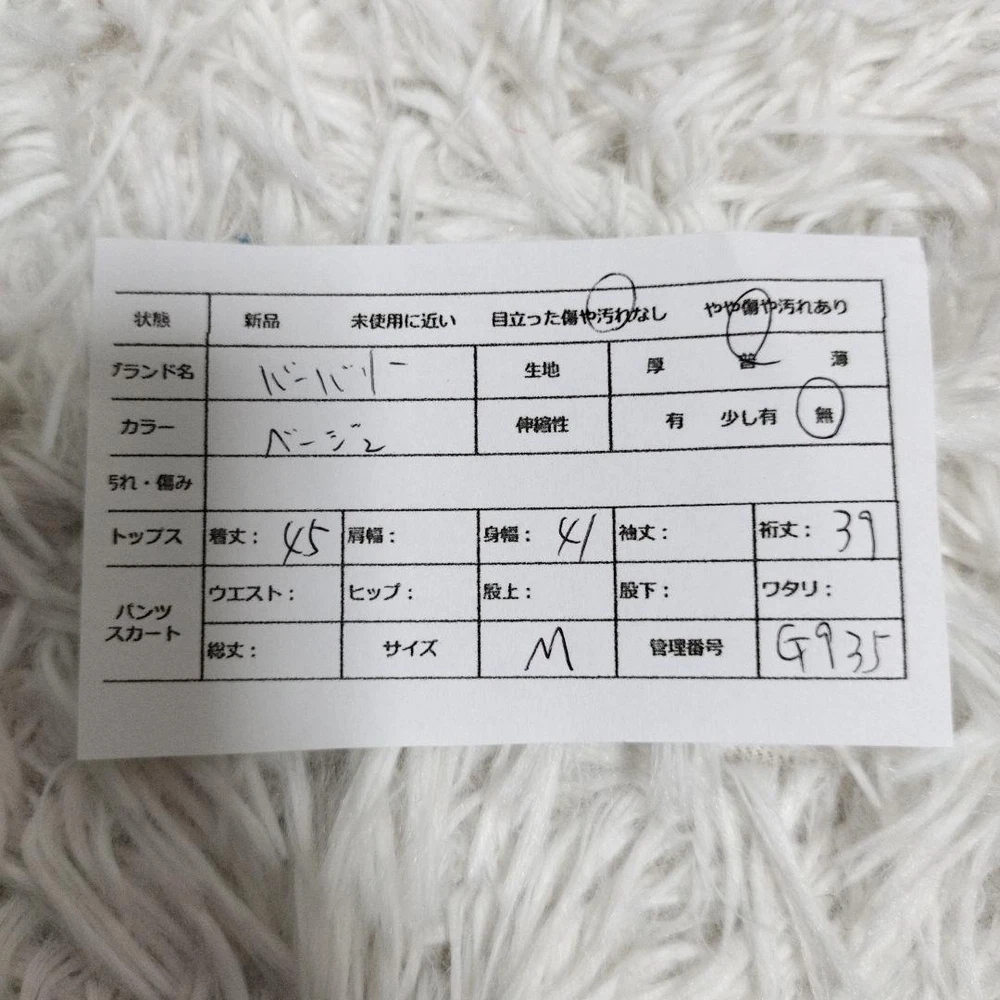 状態 新品 未使用に近い 目立った傷や汚れなし やや傷や汚れあり
ブランド名 バーバリー 生地 厚 普 薄
カラー ベージュ 伸縮性 有 少し有 無
汚れ・傷み
トップス 着丈: 45 肩幅: 身幅: 41 袖丈: 裄丈: 39
パンツ スカート ウエスト: ヒップ: 股上: 股下: ワタリ:
総丈: サイズ M 管理番号 G935